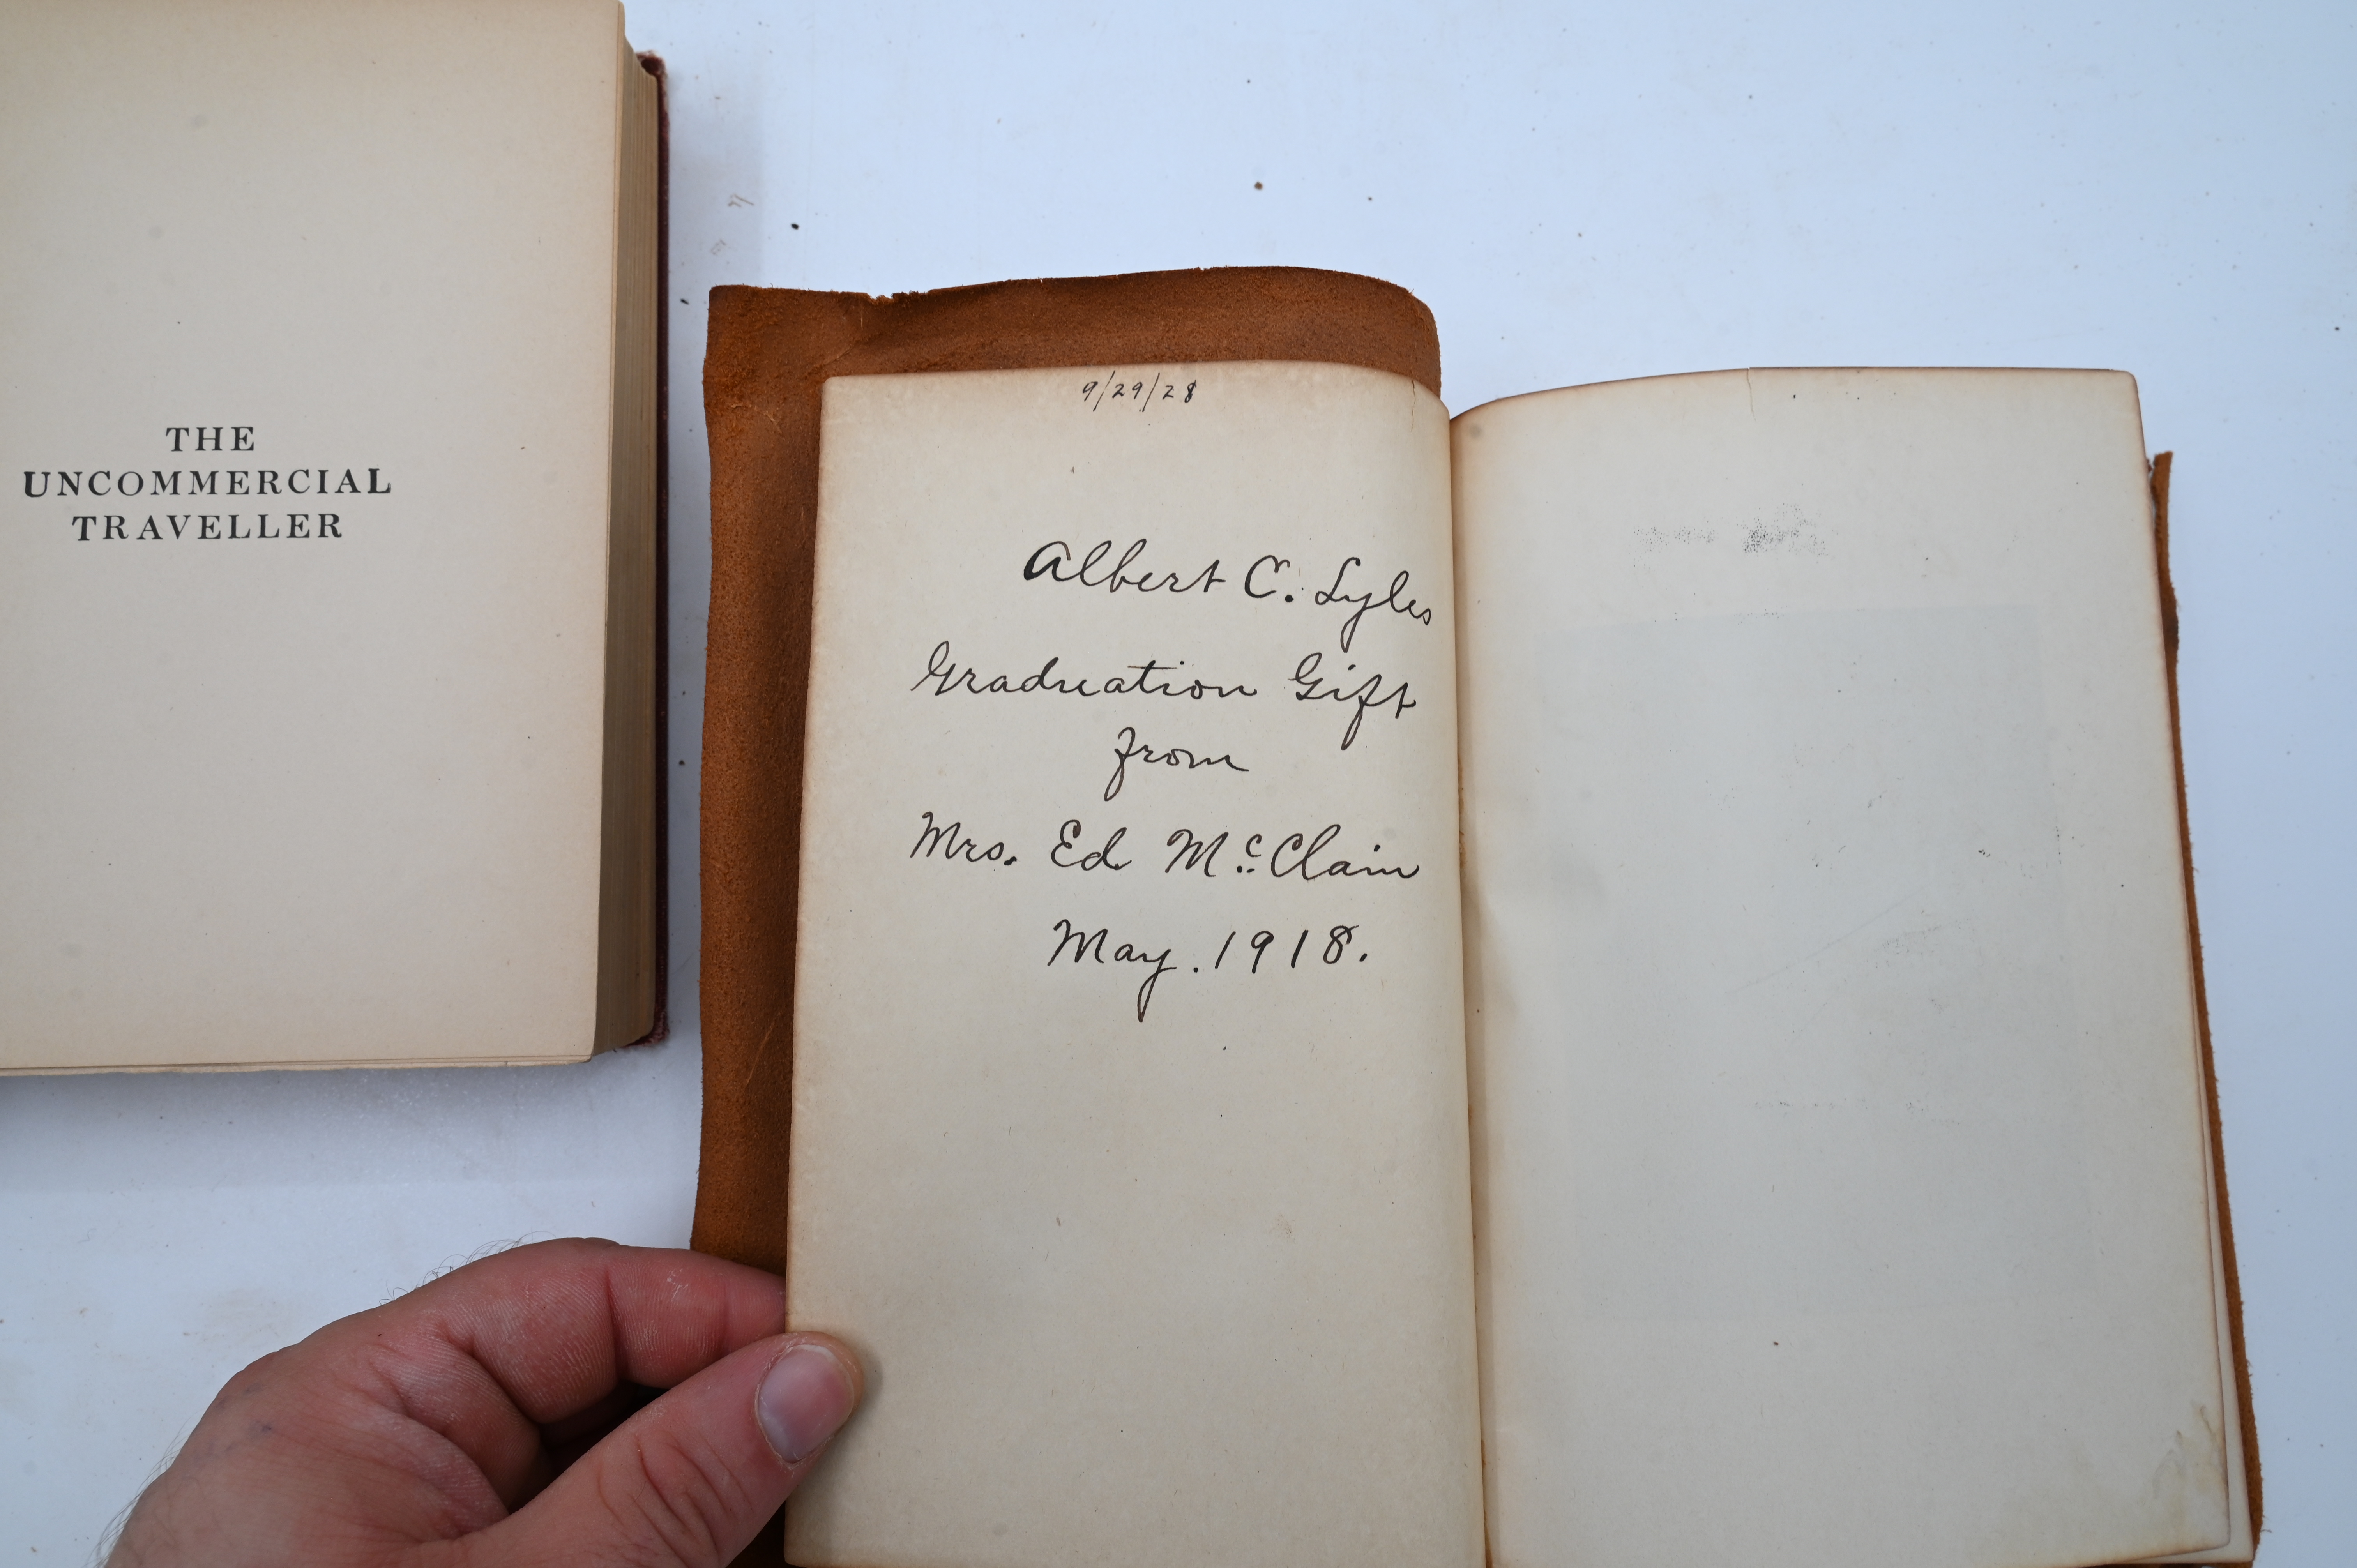 THE
UNCOMMERCIAL
TRAVELLER
9/29/28
Albert C. Lyles
Graduation Gift
from
Mrs. Ed McClain
May. 1918.